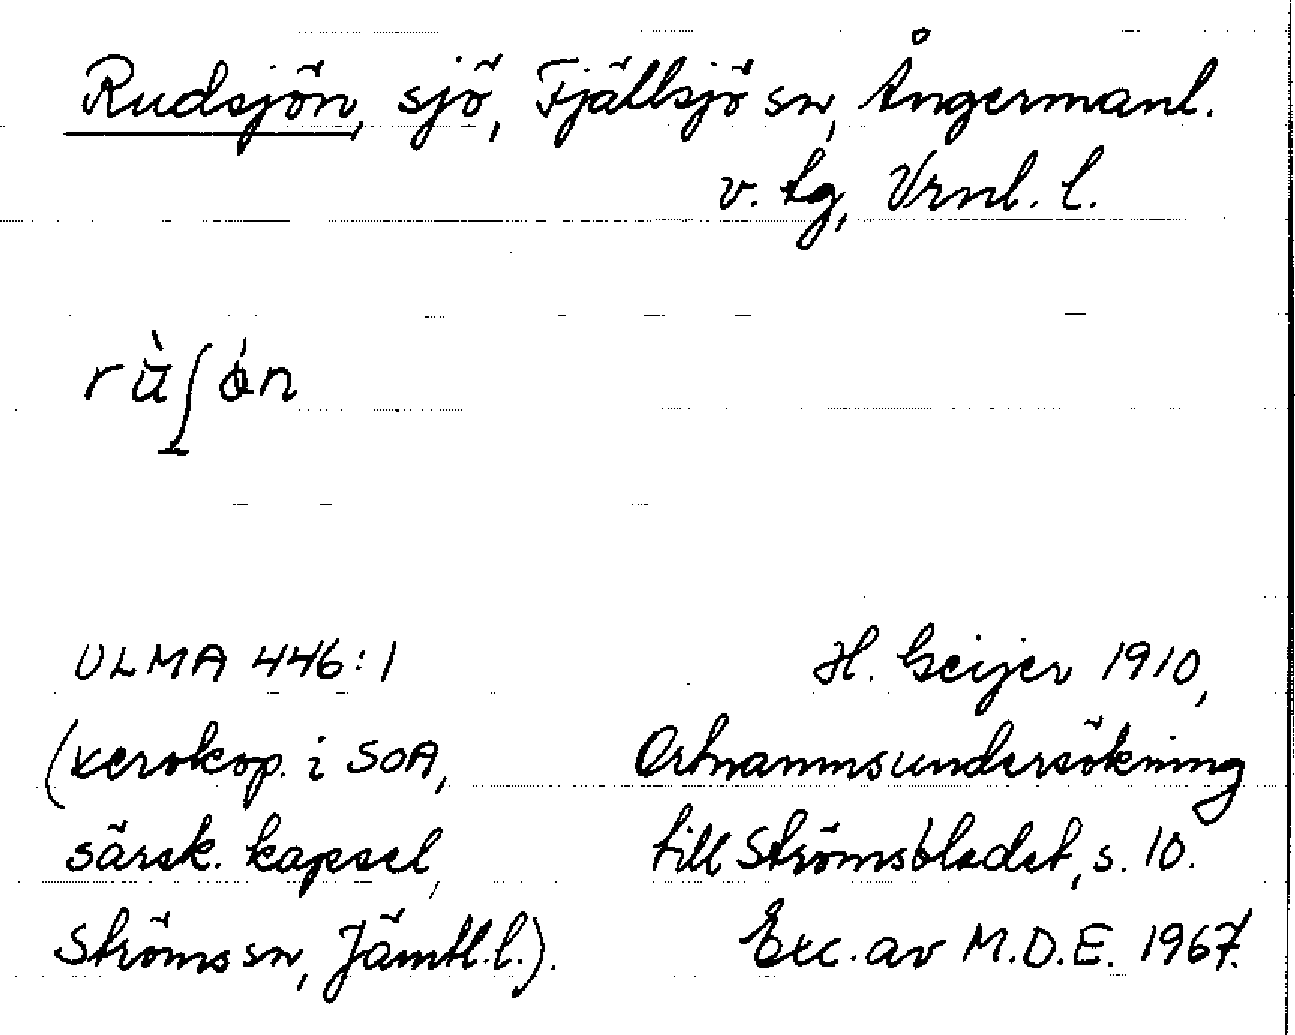 Rudsjön, sjö, Fjällsjö sn, Ångermanl.
v. tg, Vrnl. l.
rù̈ʃǿn
ULMA 446:1
H. Geijer 1910,
(xerokop. i SOA,
Ortnammsundersökning
särsk. kapsel,
till Strömsbladet, s. 10.
Ströms sn, Jämtl. l.).
Exc. av M.D.E. 1967.